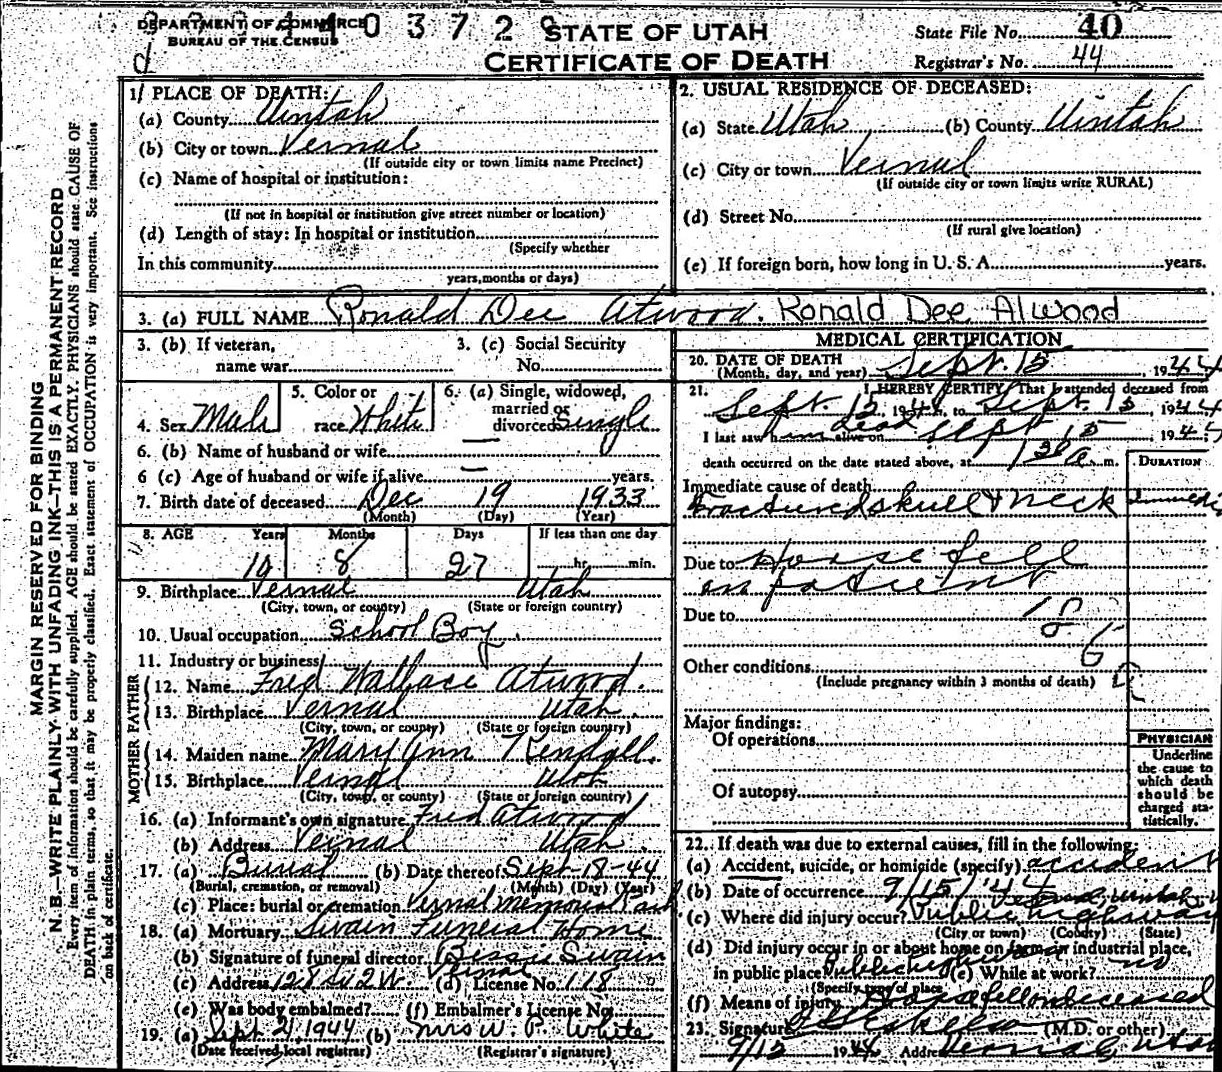 DEPARTMENT OF COMMERCE
BUREAU OF THE CENSUS
4 4 0 3 7 2
STATE OF UTAH
CERTIFICATE OF DEATH
State File No. 40
Registrar's No. 44
MARGIN RESERVED FOR BINDING
N. B.—WRITE PLAINLY WITH UNFADING INK—THIS IS A PERMANENT RECORD
Every item of information should be carefully supplied. AGE should be stated EXACTLY. PHYSICIANS should state CAUSE OF
DEATH in plain terms, so that it may be properly classified. Exact statement of OCCUPATION is very important. See instructions
on back of certificate.
1/ PLACE OF DEATH:
(a) County Uintah
(b) City or town Vernal
(If outside city or town limits name Precinct)
(c) Name of hospital or institution:
(If not in hospital or institution give street number or location)
(d) Length of stay: In hospital or institution
(Specify whether
In this community
years, months or days)
2. USUAL RESIDENCE OF DECEASED:
(a) State Utah (b) County Uintah
(c) City or town Vernal
(If outside city or town limits write RURAL)
(d) Street No.
(If rural give location)
(e) If foreign born, how long in U. S. A. years.
3. (a) FULL NAME Ronald Dee Atwood. Ronald Dee Atwood
3. (b) If veteran,
name war
3. (c) Social Security
No.
4. Sex Male
5. Color or
race White
6. (a) Single, widowed,
married or
divorced Single
6. (b) Name of husband or wife —
6 (c) Age of husband or wife if alive — years.
7. Birth date of deceased Dec 19 1933
(Month) (Day) (Year)
8. AGE Years Months Days If less than one day
10 8 27 hr. min.
9. Birthplace Vernal Utah
(City, town, or county) (State or foreign country)
10. Usual occupation School Boy.
11. Industry or business
FATHER
12. Name Fred Wallace Atwood.
13. Birthplace Vernal Utah.
(City, town, or county) (State or foreign country)
MOTHER
14. Maiden name Mary Ann Kendall.
15. Birthplace Vernal Utah
(City, town, or county) (State or foreign country)
16. (a) Informant's own signature Fred Atwood
(b) Address Vernal Utah
17. (a) Burial (b) Date thereof Sept-18-44
(Burial, cremation, or removal) (Month) (Day) (Year)
(c) Place: burial or cremation Vernal Memorial Park
18. (a) Mortuary Swain Funeral Home
(b) Signature of funeral director Swain
(c) Address 128 So 2 W. Vernal (d) License No. 118
(e) Was body embalmed? (f) Embalmer's License No.
19. (a) Sept 21, 1944 (b) Mrs W. P. White
(Date received local registrar) (Registrar's signature)
MEDICAL CERTIFICATION
20. DATE OF DEATH
(Month, day, and year) Sept. 15, 1944
21. I HEREBY CERTIFY, That I attended deceased from
Sept. 15, 1944, to Sept. 15, 1944
I last saw him dead alive on Sept 15 194
death occurred on the date stated above, at 1 30 a. m.
DURATION
Immediate cause of death
Fractured skull & neck
Due to Horse fell
on patient
Due to
Other conditions
(Include pregnancy within 3 months of death)
Major findings:
Of operations
Of autopsy
PHYSICIAN
Underline
the cause to
which death
should be
charged sta-
tistically.
22. If death was due to external causes, fill in the following:
(a) Accident, suicide, or homicide (specify) accident
(b) Date of occurrence 9/15/44
(c) Where did injury occur? Public highway
(City or town) (County) (State)
(d) Did injury occur in or about home on farm or industrial place,
in public place Public highway (e) While at work? no
(Specify type of place
(f) Means of injury Horse fell on deceased
23. Signature (M.D. or other)
9/15 1944 Address Vernal, Utah